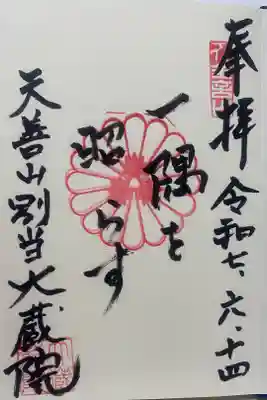 奉拝 令和七、六、十四
一隅を
照らす
天善山別当大蔵院